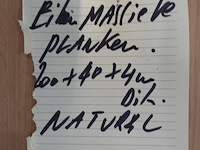 Eiken MASSieve
PLANKEN.
200 x 40 x 4cm
Dik.
NATUREL